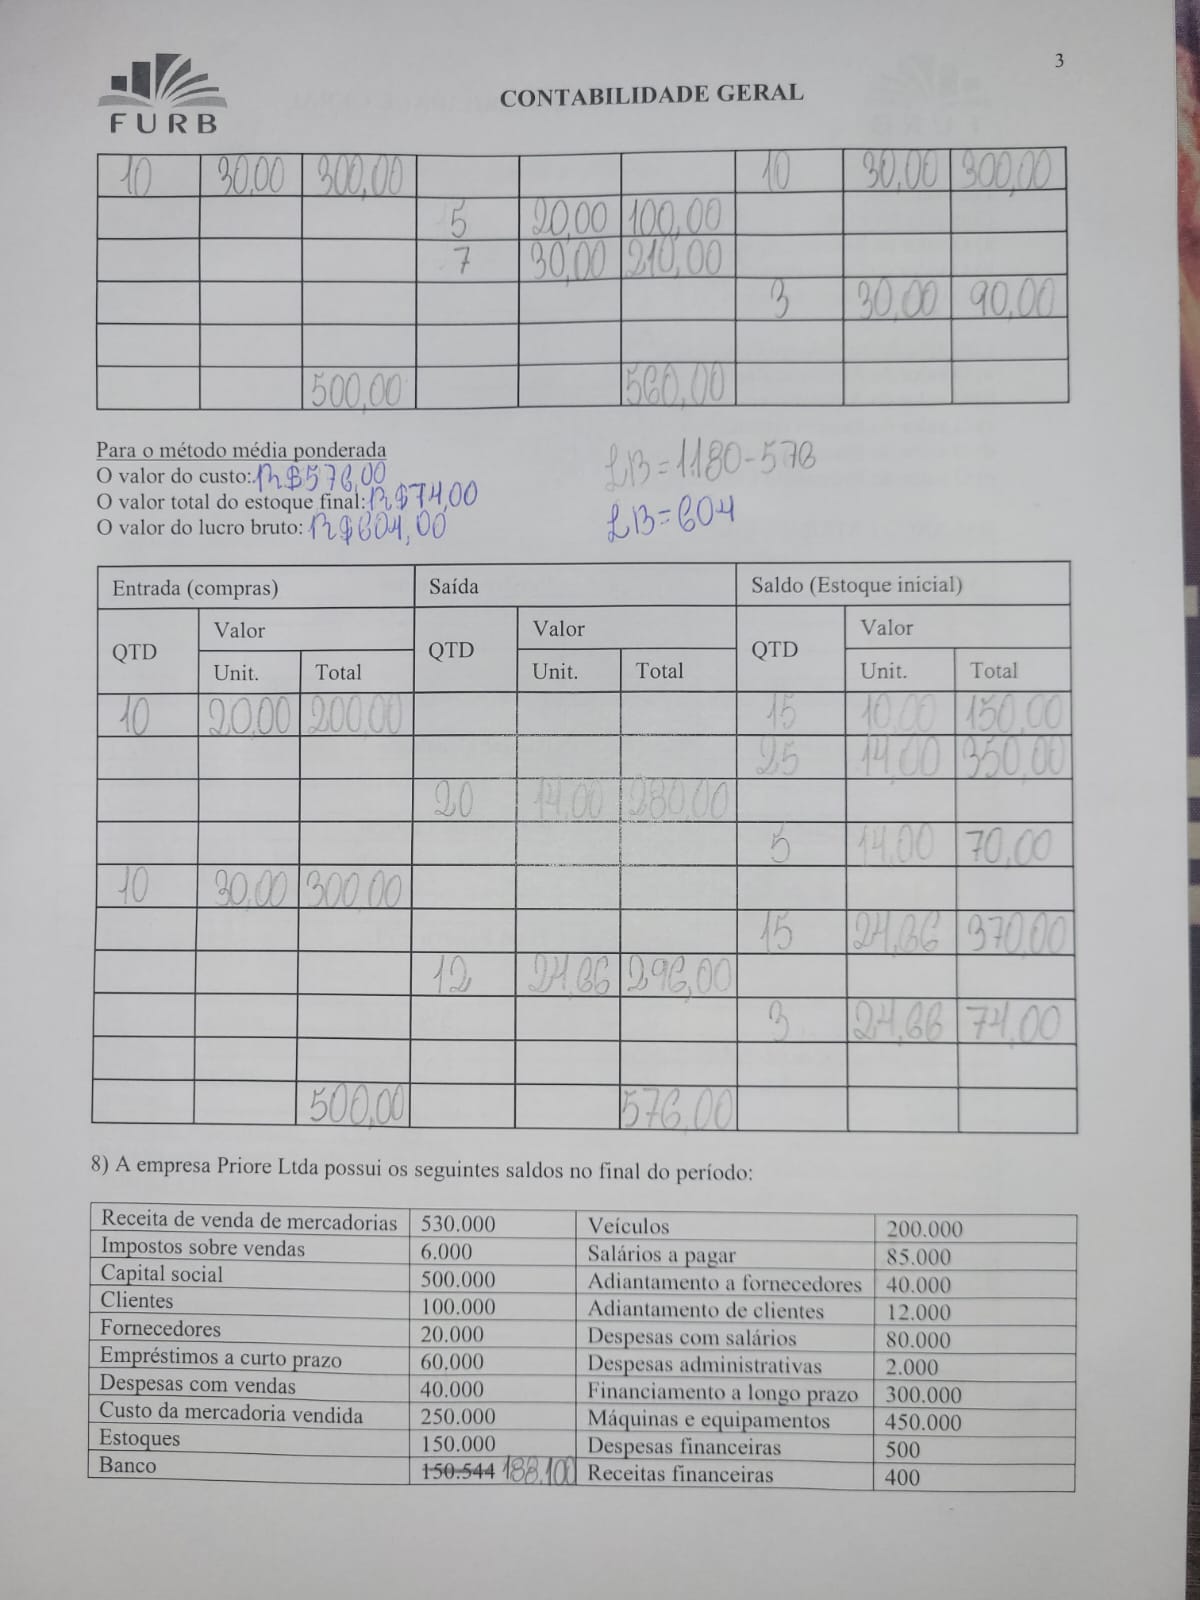 3
FURB
CONTABILIDADE GERAL
10 30,00 300,00 10 30,00 300,00
5 20,00 100,00
7 30,00 210,00
3 30,00 90,00
500,00 560,00
Para o método média ponderada
O valor do custo: R$576,00
O valor total do estoque final: R$74,00
O valor do lucro bruto: R$604,00
LB=1.180-576
LB=604
Entrada (compras) Saída Saldo (Estoque inicial)
QTD Valor QTD Valor QTD Valor
Unit. Total Unit. Total Unit. Total
10 20,00 200,00 15 10,00 150,00
25 14,00 350,00
20 14,00 280,00
5 14,00 70,00
10 30,00 300,00
15 24,66 370,00
12 24,66 296,00
3 24,66 74,00
500,00 576,00
8) A empresa Priore Ltda possui os seguintes saldos no final do período:
Receita de venda de mercadorias 530.000 Veículos 200.000
Impostos sobre vendas 6.000 Salários a pagar 85.000
Capital social 500.000 Adiantamento a fornecedores 40.000
Clientes 100.000 Adiantamento de clientes 12.000
Fornecedores 20.000 Despesas com salários 80.000
Empréstimos a curto prazo 60.000 Despesas administrativas 2.000
Despesas com vendas 40.000 Financiamento a longo prazo 300.000
Custo da mercadoria vendida 250.000 Máquinas e equipamentos 450.000
Estoques 150.000 Despesas financeiras 500
Banco 150.544 188.100 Receitas financeiras 400